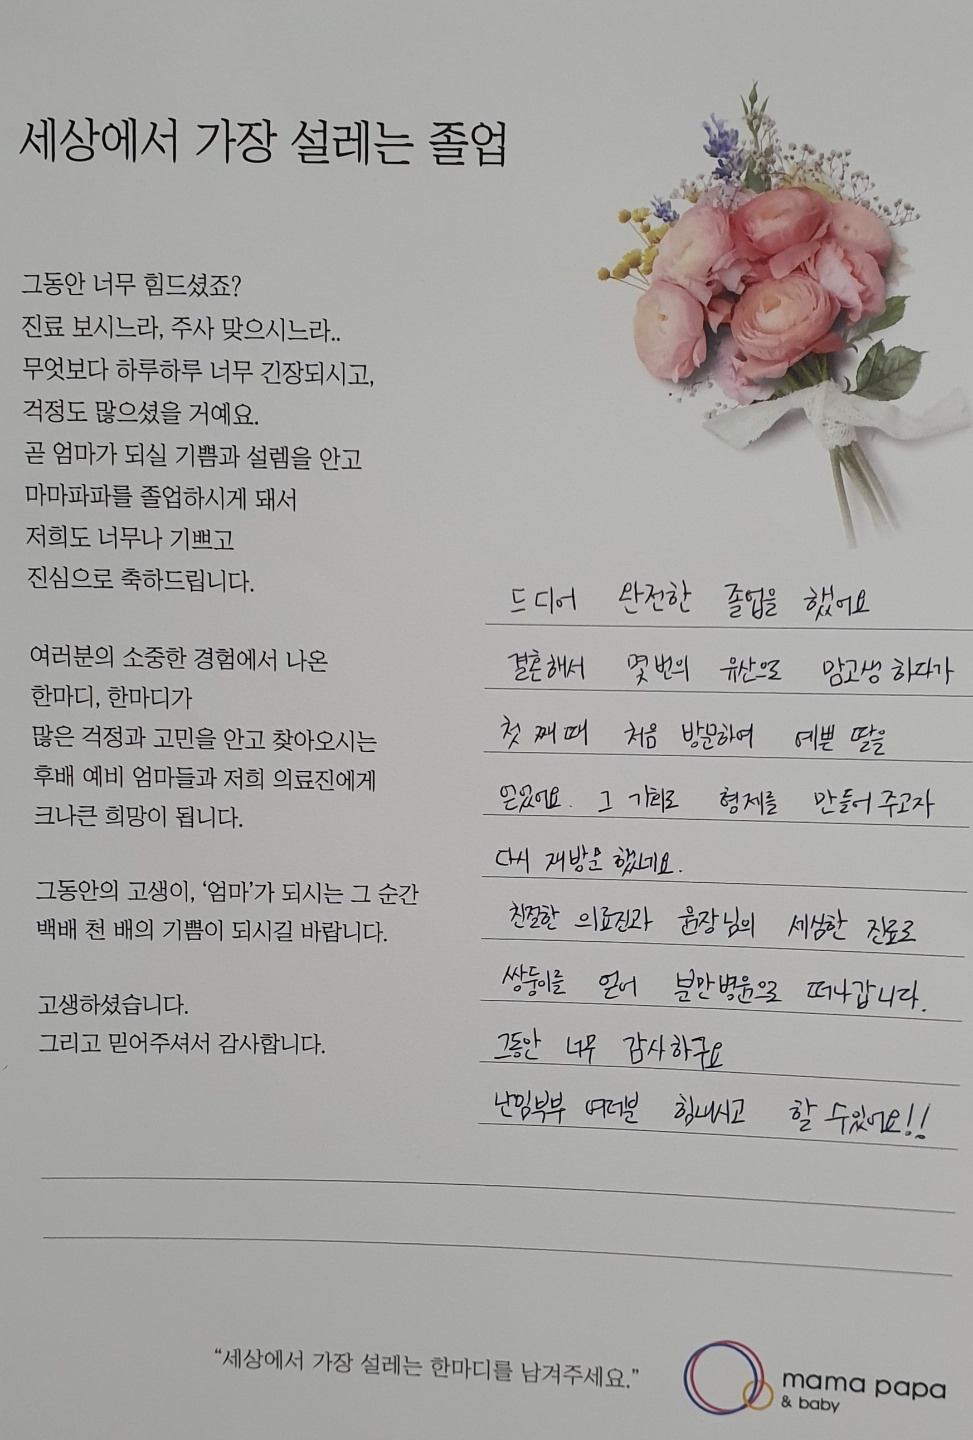 세상에서 가장 설레는 졸업
그동안 너무 힘드셨죠?
진료 보시느라, 주사 맞으시느라..
무엇보다 하루하루 너무 긴장되시고,
걱정도 많으셨을 거예요.
곧 엄마가 되실 기쁨과 설렘을 안고
마마파파를 졸업하시게 돼서
저희도 너무나 기쁘고
진심으로 축하드립니다.
여러분의 소중한 경험에서 나온
한마디, 한마디가
많은 걱정과 고민을 안고 찾아오시는
후배 예비 엄마들과 저희 의료진에게
크나큰 희망이 됩니다.
그동안의 고생이, ‘엄마’가 되시는 그 순간
백배 천 배의 기쁨이 되시길 바랍니다.
고생하셨습니다.
그리고 믿어주셔서 감사합니다.
드디어 완전한 졸업을 했어요
결혼해서 몇번의 유산으로 맘고생 하다가
첫째때 처음 방문하여 예쁜 딸을
얻었어요. 그 기회로 형제를 만들어주고자
다시 재방문했네요.
친절한 의료진과 윤장님의 세심한 진료로
쌍둥이를 얻어 분만병윤으로 떠나갑니다.
그동안 너무 감사하구요
난임부부 여러분 힘내시고 할 수있어요!!
“세상에서 가장 설레는 한마디를 남겨주세요.”
mama papa
& baby